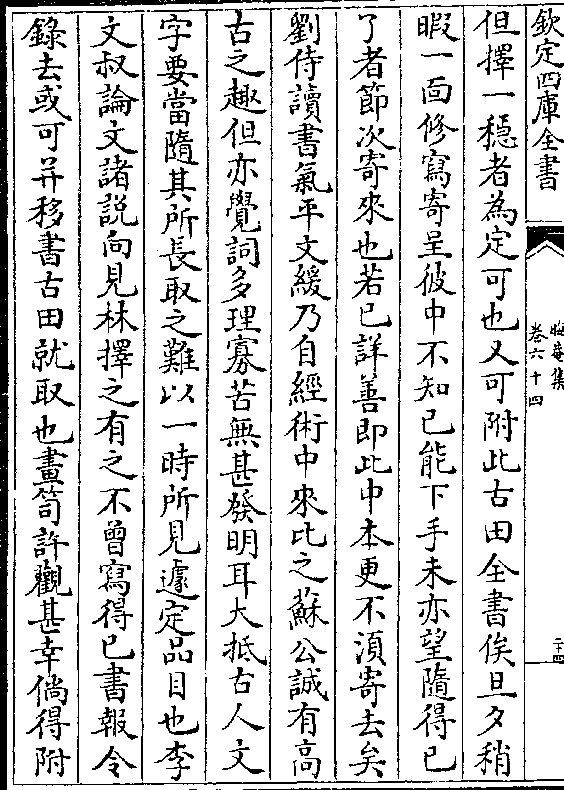 欽定四庫全書
晦菴集
卷六十四
二十四
但擇一穩者為定可也又可附此古田全書俟旦夕稍
暇一面修寫寄呈彼中不知已能下手未亦望隨得已
了者節次寄來也若已詳善即此中本更不須寄去矣
劉侍讀書氣平文緩乃自經術中來比之蘇公誠有高
古之趣但亦覺詞多理寡苦無甚發明耳大抵古人文
字要當隨其所長取之難以一時所見遽定品目也李
文叔論文諸説向見林擇之有之不曾寫得已書報令
錄去或可并移書古田就取也畫笥許觀甚幸倘得附